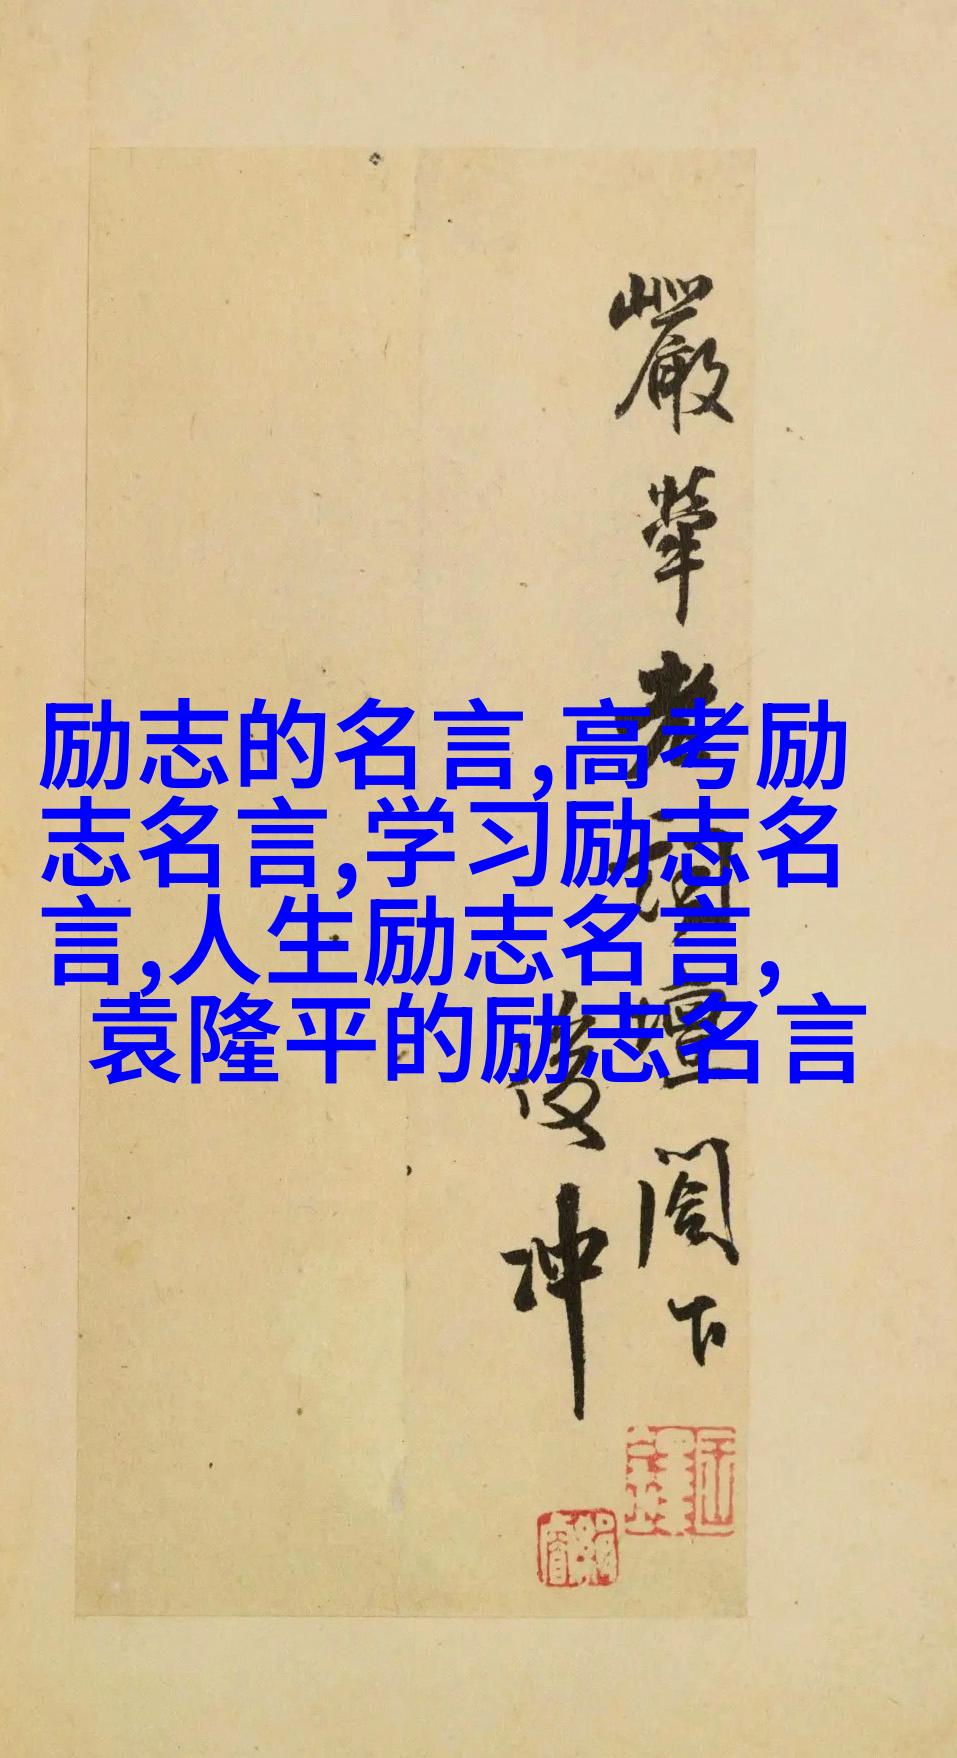 励志的名言,高考励
志名言,学习励志名
言,人生励志名言,
袁隆平的励志名言
嚴犖老詞壇閣下
後冲